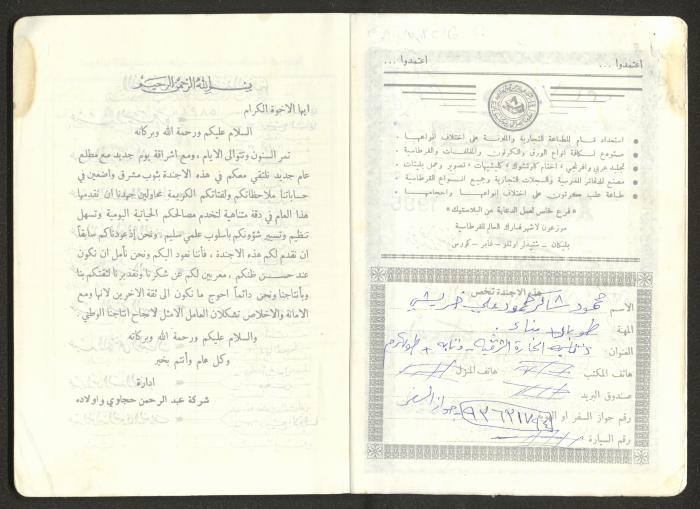 بسم الله الرحمن الرحيم
ايها الاخوة الكرام
السلام عليكم ورحمة الله وبركاته
تمر السنون وتتوالى الايام ، ومع اشراقة يوم جديد مع مطلع
عام جديد نلتقي معكم في هذه الاجندة بثوب مشرق واضعين في
حساباتنا ملاحظاتكم ولفتاتكم الكريمة محاولين جهدنا ان نقدمها
هذا العام في دقة متناهية لتخدم مصالحكم الحياتية اليومية وتسهل
تنظيم وتسيير شؤونكم باسلوب علمي سليم . ونحن إذ عودناكم سابقاً
ان نقدم لكم هذه الاجندة ، فأننا نعود اليكم ونحن نأمل ان نكون
عند حسن ظنكم . معربين لكم عن شكرنا وتقديرنا لثقتكم بنا
وبأنتاجنا ونحن دائماً احوج ما نكون الى ثقة الاخرين لانها ومع
الامانة والاخلاص تشكلان العامل الامثل لانجاح انتاجنا الوطني
والسلام عليكم ورحمة الله وبركاته
وكل عام وأنتم بخير
ادارة
شركة عبد الرحمن حجاوي واولاده
اعتمدوا ... اعتمدوا ...
استعداد تام للطباعة التجارية والملونة على اختلاف انواعها
مستودع لكافة انواع الورق والكرتون والمغلفات والقرطاسية
تجليد عربي وافرنجي ، اختام كاوتشوك ، كليشيهات ، تصوير وعمل بليتات
مصنع للدفاتر المدرسية والسجلات التجارية وجميع انواع القرطاسية
طباعة علب كرتون على اختلاف انواعها واحجامها
« فرع خاص لعمل الدعاية عن البلاستيك »
موزعون لاشهر مارك العالم للقرطاسية
بليكان - شتيدلر
هذه الاجندة تخص
الاسم محمود شاكر محمود علي
المهنة
العنوان: الحارة الشرقية - + طولكرم
هاتف المكتب هاتف المنزل
صندوق البريد
رقم جواز السفر او جواز السفر
رقم السيارة